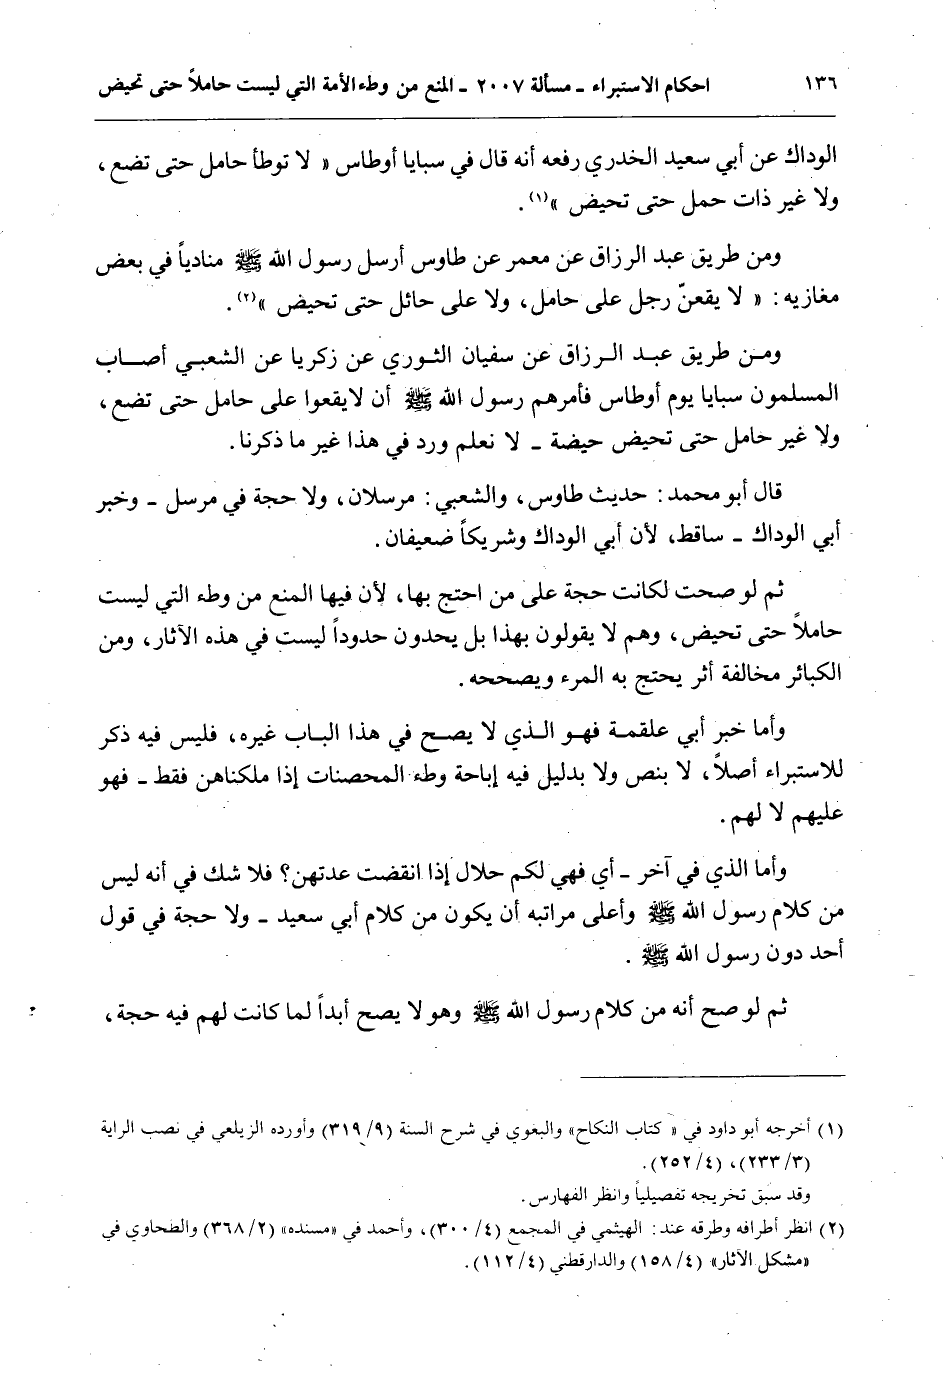 ١٣٦ احكام الاستبراء ـ مسألة ٢٠٠٧ ـ المنع من وطء الأمة التي ليست حاملاً حتى تحيض
الوداك عن أبي سعيد الخدري رفعه أنه قال في سبايا أوطاس « لا توطأ حامل حتى تضع ،
ولا غير ذات حمل حتى تحيض »(١) .
ومن طريق عبد الرزاق عن معمر عن طاوس أرسل رسول الله ﷺ منادياً في بعض
مغازيه : « لا يقعنّ رجل على حامل ، ولا على حائل حتى تحيض »(٢) .
ومـن طريق عبـد الـرزاق عن سفيان الثـوري عن زكريا عن الشعبـي أصـاب
المسلمون سبايا يوم أوطاس فأمرهم رسول الله ﷺ أن لايقعوا على حامل حتى تضع ،
ولا غير حامل حتى تحيض حيضة ـ لا نعلم ورد في هذا غير ما ذكرنا .
قال أبو محمد : حديث طاوس ، والشعبي : مرسلان ، ولا حجة في مرسل ـ وخبر
أبي الوداك ـ ساقط ، لأن أبي الوداك وشريكاً ضعيفان .
ثم لو صحت لكانت حجة على من احتج بها ، لأن فيها المنع من وطء التي ليست
حاملاً حتى تحيض ، وهم لا يقولون بهذا بل يحدون حدوداً ليست في هذه الآثار ، ومن
الكبائر مخالفة أثر يحتج به المرء ويصححه .
وأما خبر أبي علقمـة فهـو الـذي لا يصـح في هذا البـاب غيره ، فليس فيه ذكر
للاستبراء أصلاً ، لا بنص ولا بدليل فيه إباحة وطء المحصنات إذا ملكناهن فقط ـ فهو
عليهم لا لهم .
وأما الذي في آخر ـ أي فهي لكم حلال إذا انقضت عدتهن؟ فلا شك في أنه ليس
من كلام رسول الله ﷺ وأعلى مراتبه أن يكون من كلام أبي سعيد ـ ولا حجة في قول
أحد دون رسول الله ﷺ .
ثم لو صح أنه من كلام رسول الله ﷺ وهو لا يصح أبداً لما كانت لهم فيه حجة ،
(١) أخرجه أبو داود في « كتاب النكاح» والبغوي في شرح السنة (٣١٩/٩) وأورده الزيلعي في نصب الراية
(٢٣٣/٣) ، (٢٥٢/٤) .
وقد سبق تخريجه تفصيلياً وانظر الفهارس .
(٢) انظر أطرافه وطرقه عند : الهيثمي في المجمع (٣٠٠/٤) ، وأحمد في «مسنده» (٣٦٨/٢) والطحاوي في
«مشكل الآثار» (١٥٨/٤) والدارقطني (١١٢/٤) .